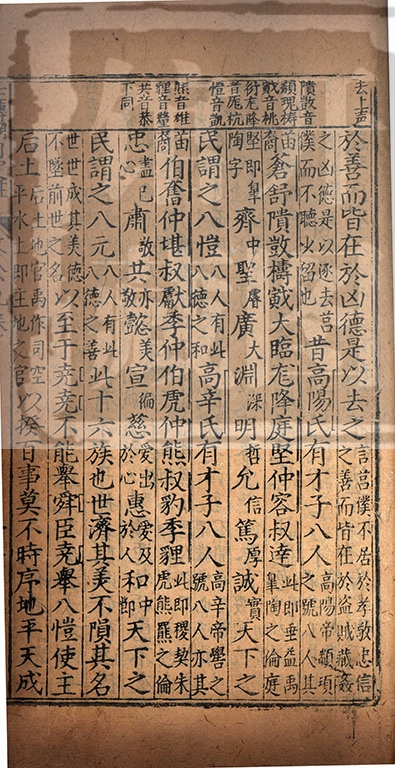 去上声
隤敱音
頹瑰檮
戭音桃
衍尨降
音厖杭
愷音凱
熊音雄
貍音釐
共音恭
下同
於善而皆在於凶德是以去之言莒僕不居於孝敬忠信之善而皆在於盜賊藏姦
之凶德是以逐去莒僕而不聽火留也昔高陽氏有才子八人高陽帝顓頊之號八人其
苗裔蒼舒隤敱檮戭大臨尨降庭堅仲容叔達此即垂益禹皋陶之倫庭
堅即皋陶字齊中聖廣大淵深明哲允信篤厚誠實天下之
民謂之八愷八人有此八德之和高辛氏有才子八人高辛帝嚳之號八人亦其
苗裔伯奮仲堪叔獻季仲伯虎仲熊叔豹季貍此即稷契朱虎熊羆之倫
忠盡己心肅敬共亦敬懿美宣徧慈愛出於心惠愛及於人和天下之
民謂之八元八人有此八德之善此十六族也世濟其美不隕其名
世世成其美德不墜前世之名以至于堯堯不能舉舜臣堯舉八愷使主
后土后土地官禹作司空平水土即主地之官以揆百事莫不時序地平天成